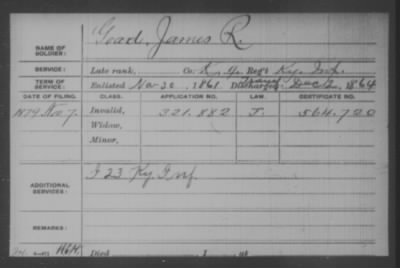 NAME OF SOLDIER: James R.
SERVICE: Late rank, Co. K, 9 Reg't Ky. Inf.
TERM OF SERVICE: Enlisted Nov 30, 1861 Discharged 1864
DATE OF FILING. CLASS. APPLICATION NO. LAW. CERTIFICATE NO.
1879 Nov 7. Invalid, 321.882 J. 564.720
Widow,
Minor,
ADDITIONAL SERVICES: I 23 Ky. Inf
REMARKS:
Died